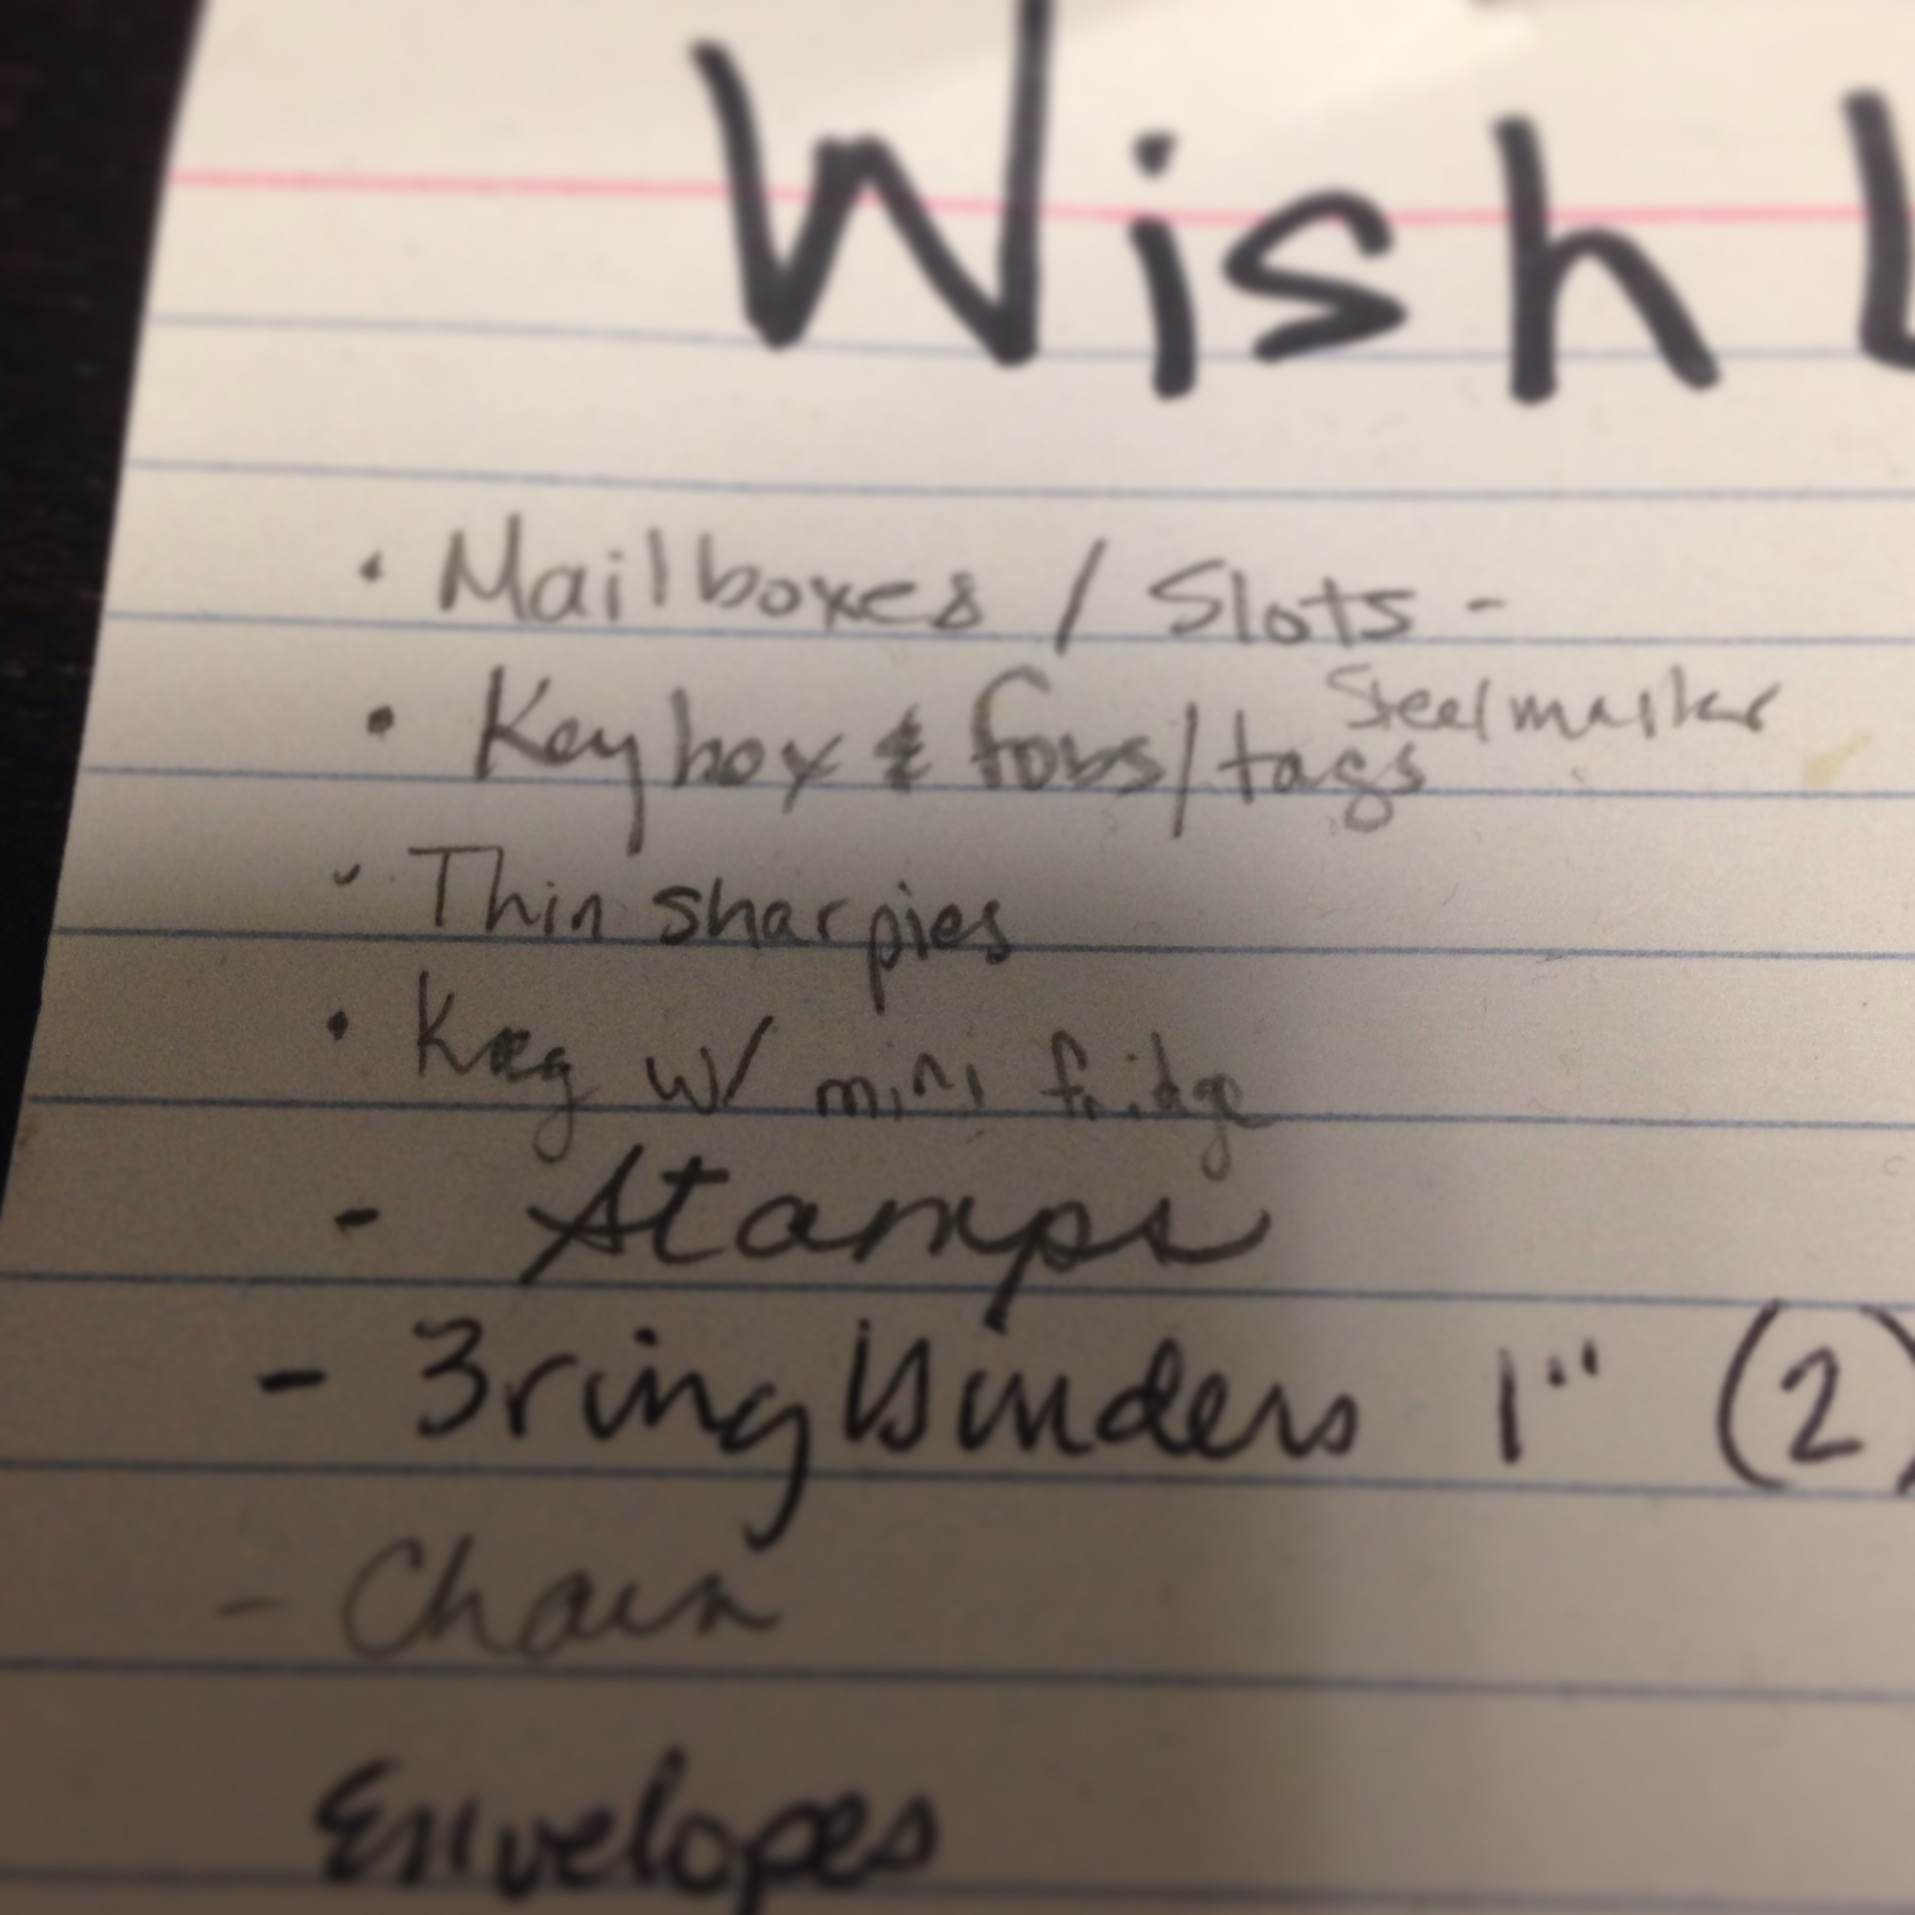 Wish L
• Mailboxes / Slots -
Steelmaster
• Key box & fobs/tags
• Thin sharpies
• Keg w/ mini fridge
- Stamps
- 3 ring Binders 1" (2)
- Chain
Envelopes